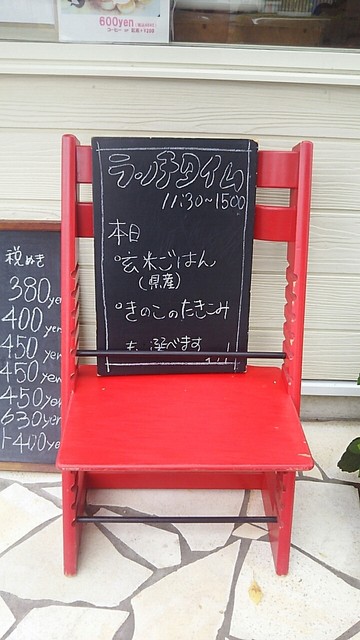 600yen
ランチタイム
11:30~15:00
本日
°玄米ごはん
(県産)
°きのこのたきこみ
も 選べます
税ぬき
380yen
400yen
450yen
450yen
450yen
630yen